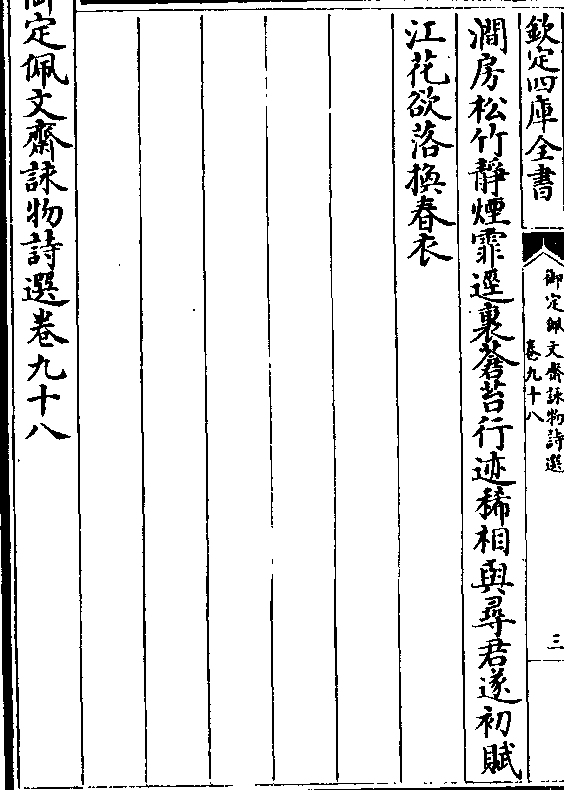 欽定四庫全書
御定佩文齋詠物詩選
卷九十八
三
澗房松竹靜煙霏逕裏蒼苔行迹稀相與尋君遂初賦
江花欲落換春衣
御定佩文齋詠物詩選卷九十八